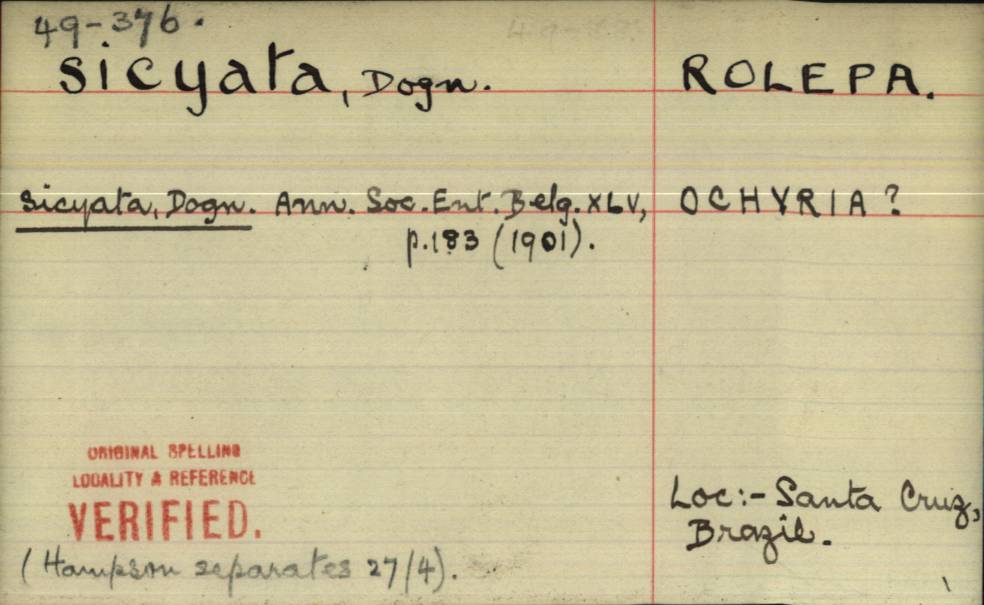 49-376.
sicyata, Dogn. ROLEPA.
sicyata, Dogn. Ann. Soc. Ent. Belg. XLV, OCHYRIA?
p.183 (1901).
ORIGINAL SPELLING
LOCALITY & REFERENCE
VERIFIED.
Loc:- Santa Cruz,
Brazil.
(Hampson separates 27/4).